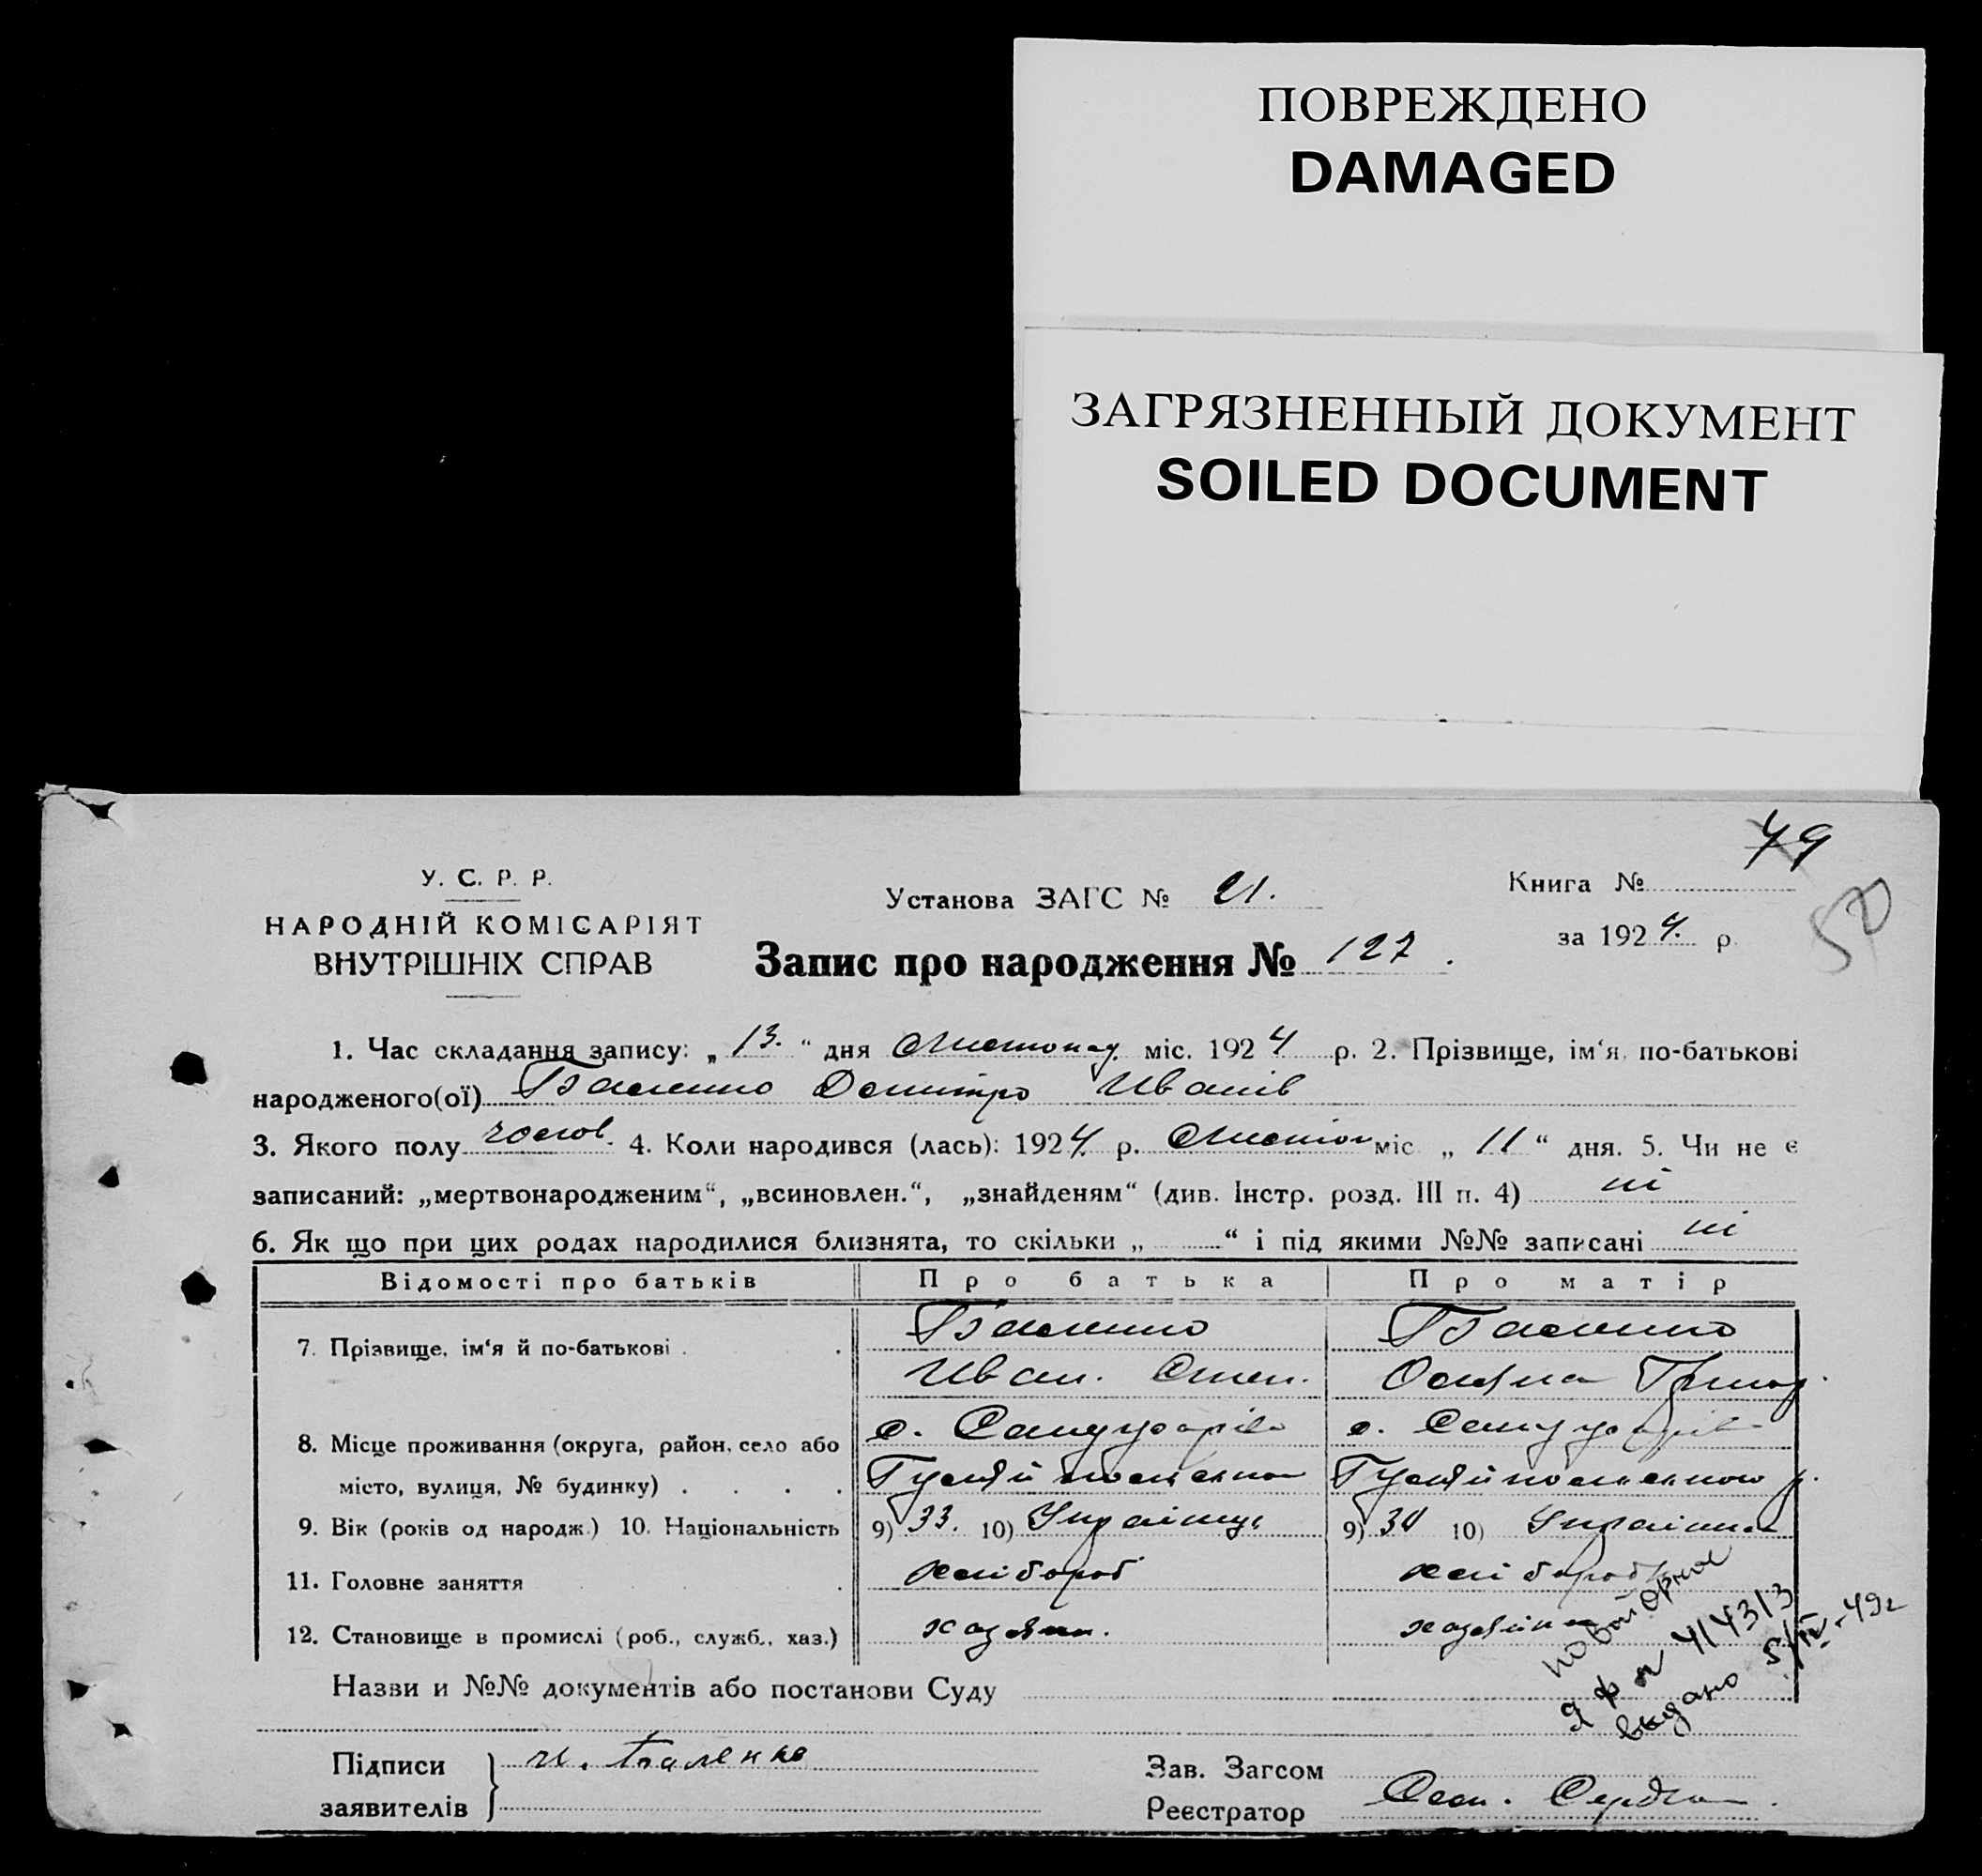 ПОВРЕЖДЕНО
DAMAGED
ЗАГРЯЗНЕННЫЙ ДОКУМЕНТ
SOILED DOCUMENT
79
50
У. С. Р. Р.
НАРОДНІЙ КОМІСАРІЯТ
ВНУТРІШНІХ СПРАВ
Установа ЗАГС № 21.
Книга №
за 1924. р.
Запис про народження № 127.
1. Час складання запису: „13." дня Листопад міс. 1924 р. 2. Прізвище, ім'я, по-батькові
народженого(ої) Баленко Дмитро Иванів
3. Якого полу чолов. 4. Коли народився (лась): 1924 р. Листоп міс. „11" дня. 5. Чи не є
записаний: „мертвонародженим", „всиновлен.", „знайденям" (див. Інстр. розд. III п. 4) ні
6. Як що при цих родах народилися близнята, то скільки „ " і під якими №№ записані ні
Відомості про батьків Про батька Про матір
7. Прізвище, ім'я й по-батькові . . Баленко Баленко
Иван. Степ. Григор.
8. Місце проживання (округа, район, село або с. с.
місто, вулиця, № будинку) . . . .
9. Вік (років од народж.) 10. Національність 9) 33. 10) Українець 9) 30 10) Українка
11. Головне заняття . хлібороб хлібороб
12. Становище в промислі (роб., служб., хаз.) хазяін. хазяйка
Назви и №№ документів або постанови Суду
повторное
Я ф № 414313
выдано 5/IV-49г
Підписи
заявителів
И. Баленко
Зав. Загсом
Реєстратор